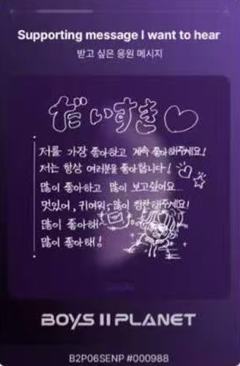 Supporting message I want to hear
받고 싶은 응원 메시지
だいすき♡
저를 가장 좋아하고 계속 좋아해주세요!
저는 항상 여러분을 좋아합니다!
많이 좋아하고 많이 보고싶어요...
멋있어, 귀여워 많이 해주세요!
많이 좋아해
많이 좋아해!
BOYS II PLANET
B2P06SENP #000988